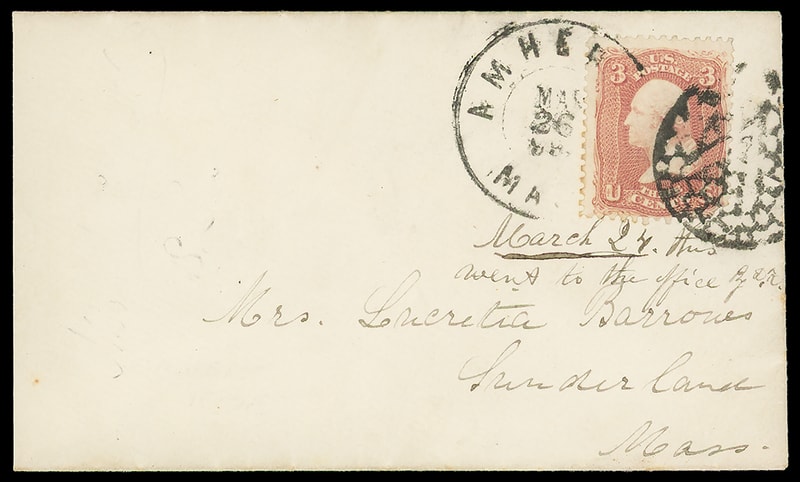 AMHE
MAR
26
MA
3 U.S. POSTAGE 3
U THREE CENTS
March 24. this
went to the office
Mrs. Lucretia Barrows
Sunderland
Mass.